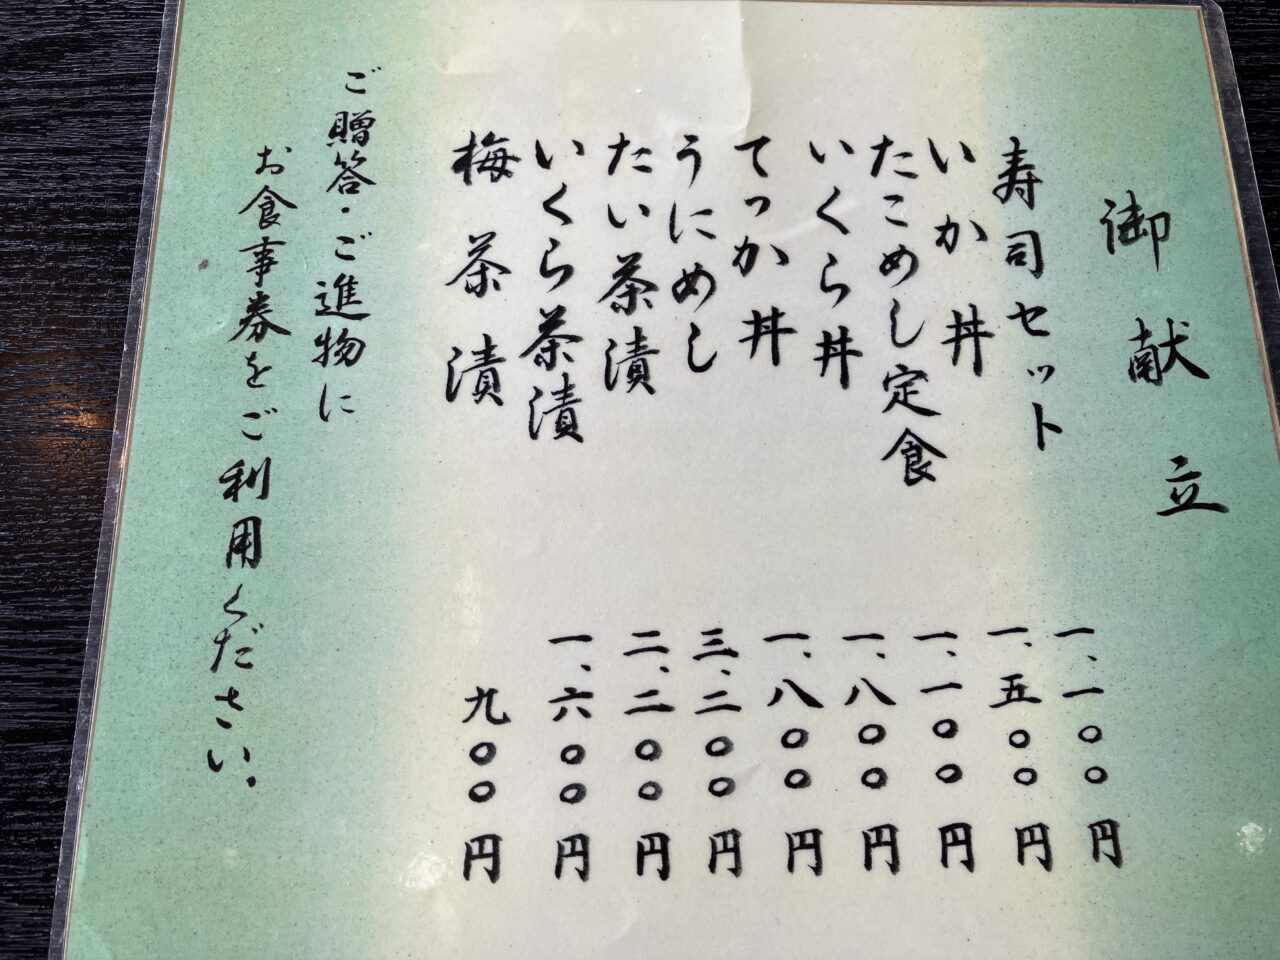 御献立
寿司セット 一、一〇〇円
いか丼 一、五〇〇円
たこめし定食 一、一〇〇円
いくら丼 一、八〇〇円
てっか丼 一、八〇〇円
うにめし 三、二〇〇円
たい茶漬 二、二〇〇円
いくら茶漬 一、六〇〇円
梅茶漬 九〇〇円
ご贈答・ご進物に
お食事券をご利用ください。